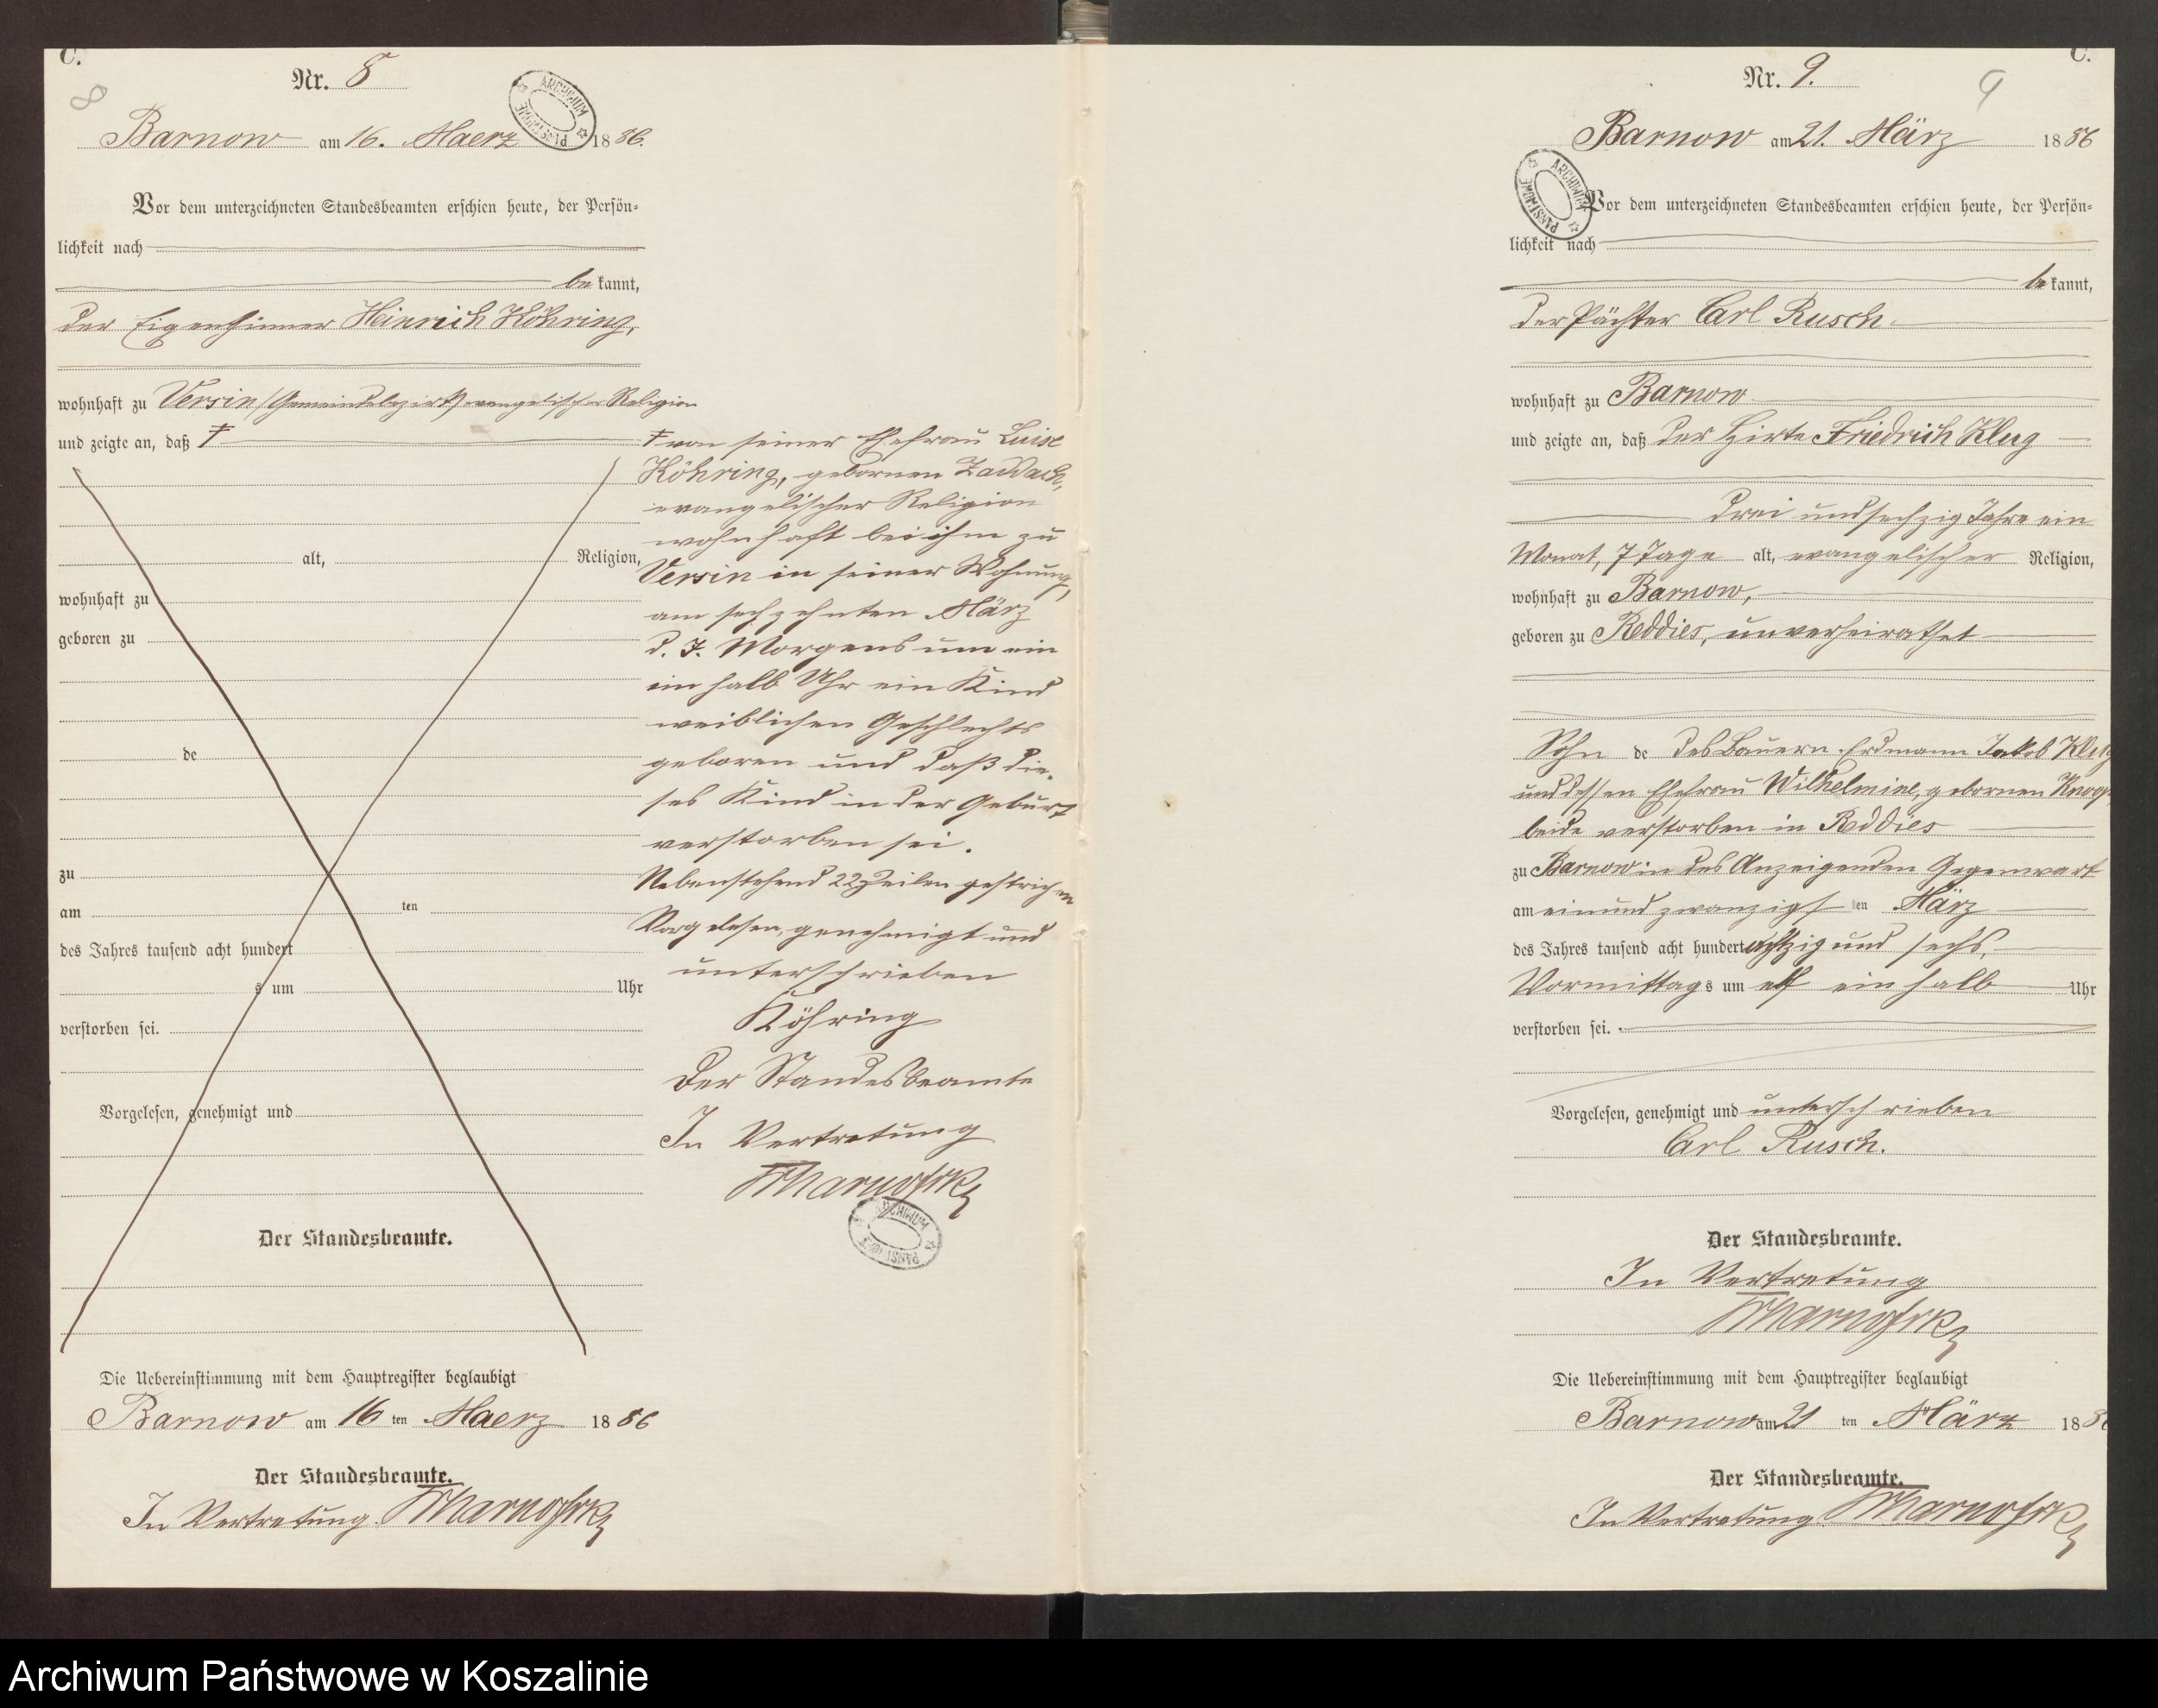 C.
8
Nr. 8
Barnow am 16. Maerz 1886.
ARCHIWUM PAŃSTWOWE
Vor dem unterzeichneten Standesbeamten erschien heute, der Persön-
lichkeit nach
be kannt,
der Eigenthümer Heinrich Köhring,
wohnhaft zu Versin (Gemeindebezirk) evangelischer Religion
und zeigte an, daß Ŧ
alt, Religion,
wohnhaft zu
geboren zu
de
zu
am ten
des Jahres tausend acht hundert
s um Uhr
verstorben sei.
Vorgelesen, genehmigt und
Der Standesbeamte.
Ŧ von seiner Ehefrau Luise
Köhring, gebornen Zaddach,
evangelischer Religion
wohnhaft bei ihm zu
Versin in seiner Wohnung,
am sechzehnten März
d. J. Morgens um ein
ein halb Uhr ein Kind
weiblichen Geschlechts
geboren und daß die-
ses Kind in der Geburt
verstorben sei.
Nebenstehend 22 Zeilen gestrichen
Vorgelesen, genehmigt und
unterschrieben
Köhring
Der Standesbeamte
In Vertretung
ARCHIWUM PAŃSTWOWE
Die Uebereinstimmung mit dem Hauptregister beglaubigt
Barnow am 16 ten Maerz 1886
Der Standesbeamte.
In Vertretung
C.
9
Nr. 9.
Barnow am 21. März 1886
ARCHIWUM PAŃSTWOWE
Vor dem unterzeichneten Standesbeamten erschien heute, der Persön-
lichkeit nach
be kannt,
der Pächter Carl Rusch
wohnhaft zu Barnow
und zeigte an, daß der Hirte Friedrich Klug
drei und sechzig Jahre ein
Monat, 7 Tage alt, evangelischer Religion,
wohnhaft zu Barnow,
geboren zu Reddies, unverheirathet
Sohn de des Bauern Erdmann Jakob Klug
und dessen Ehefrau Wilhelmine, gebornen
beide verstorben in Reddies
zu Barnow in des Anzeigenden Gegenwart
am einund zwanzigsten März
des Jahres tausend acht hundert achtzig und sechs,
Vormittags um elf ein halb Uhr
verstorben sei.
Vorgelesen, genehmigt und unterschrieben
Carl Rusch.
Der Standesbeamte.
In Vertretung
Die Uebereinstimmung mit dem Hauptregister beglaubigt
Barnow am 21 ten März 188
Der Standesbeamte.
In Vertretung
Archiwum Państwowe w Koszalinie